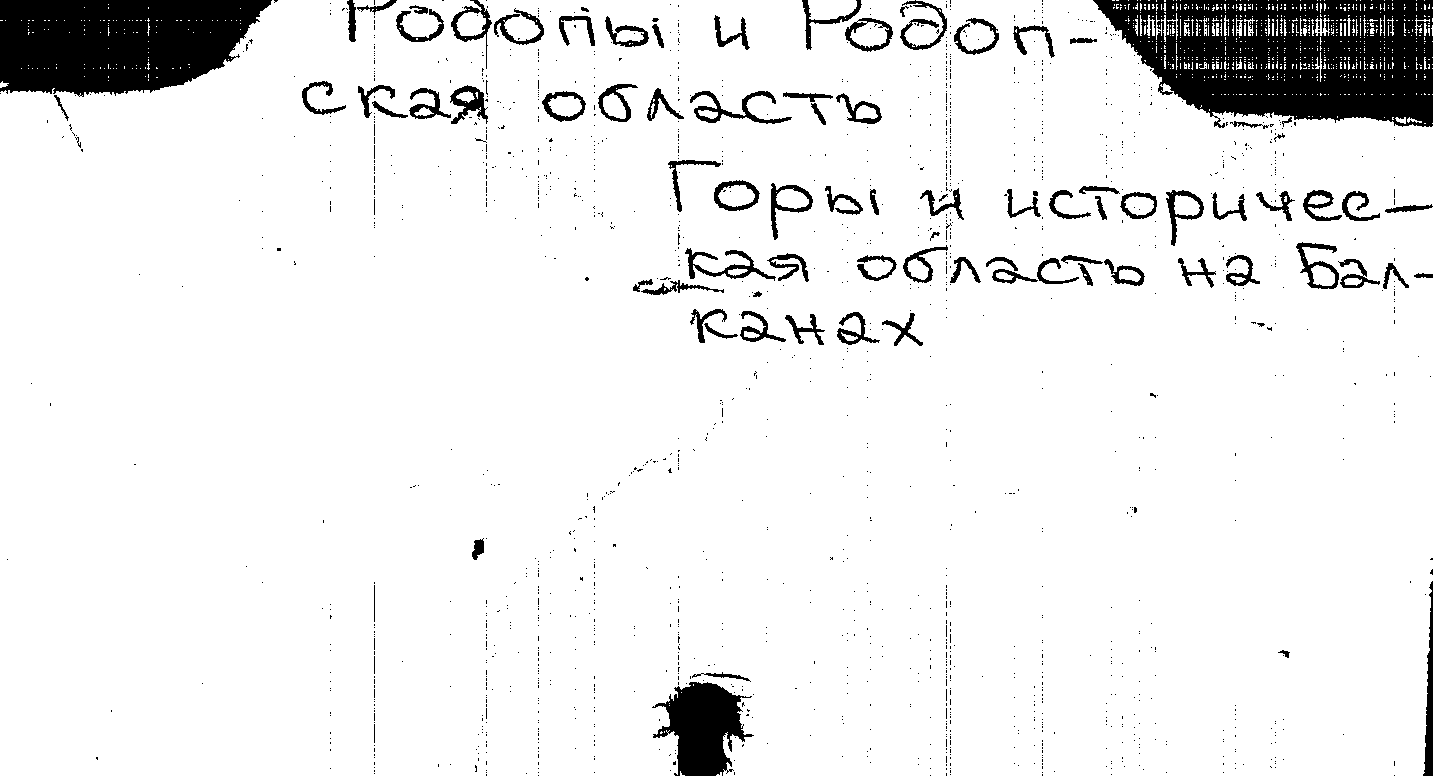 Родопы и Родоп-
ская область
Горы и историчес-
кая область на Бал-
канах